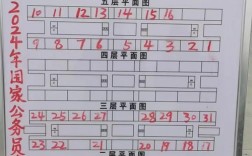 2024年国家公务员
五层平面图
10 11 12 13 14 15 16
9 8 7 6 5 4 3 2 1
四层平面图
三层平面图
24 25 26 27 28 29 30 31
23 22 21 20 19 18 17